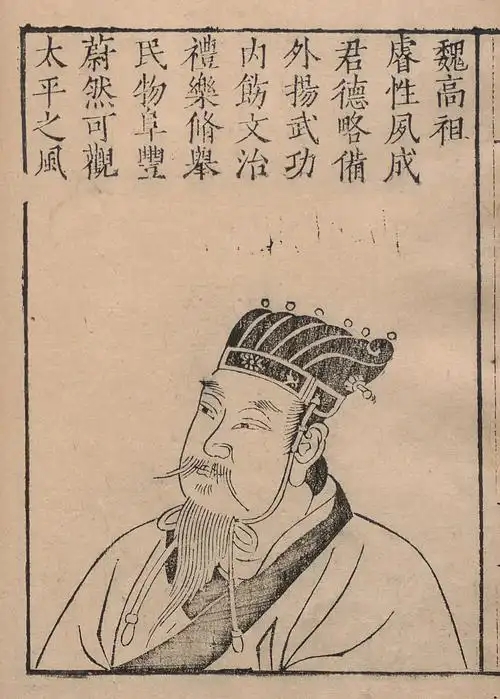 魏高祖
睿性夙成
君德略備
外揚武功
內飭文治
禮樂脩舉
民物阜豐
蔚然可觀
太平之風